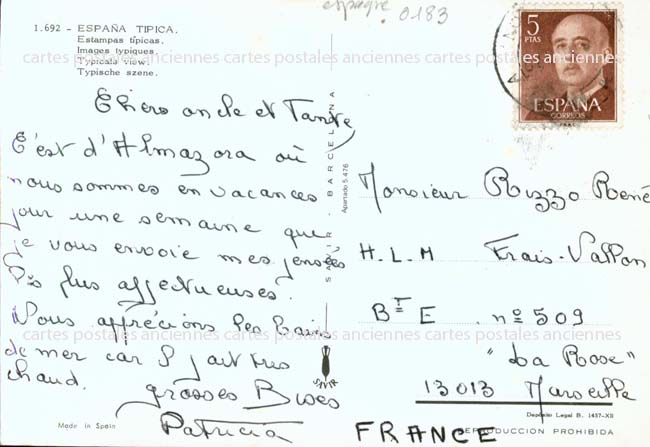 espagne 0183
1.692 - ESPAÑA TIPICA.
Estampas típicas.
Images typiques.
Typicals view.
Typische szene.
5
PTAS
ESPAÑA
CORREOS
cartes postales anciennes cartes postales anciennes cartes postales anciennes
Chers oncle et Tante
C'est d'Almazora où
nous sommes en vacances
pour une semaine que
je vous envoie mes pensées
les plus affectueuses.
Nous apprécions les bains
de mer car il fait très
chaud. grosses Bises
Patricia
SAVIR - BARCELONA
Apartado 5.476
SAVIR
Monsieur Rizzo René
H.L.M Frais-Vallon
BT E nº 509
"La Rose"
13013 Marseille
FRANCE
Made in Spain
Depósito Legal B. 1437-XII
REPRODUCCION PROHIBIDA
cartes postales anciennes cartes postales anciennes cartes postales anciennes
cartes postales anciennes cartes postales anciennes cartes postales anciennes